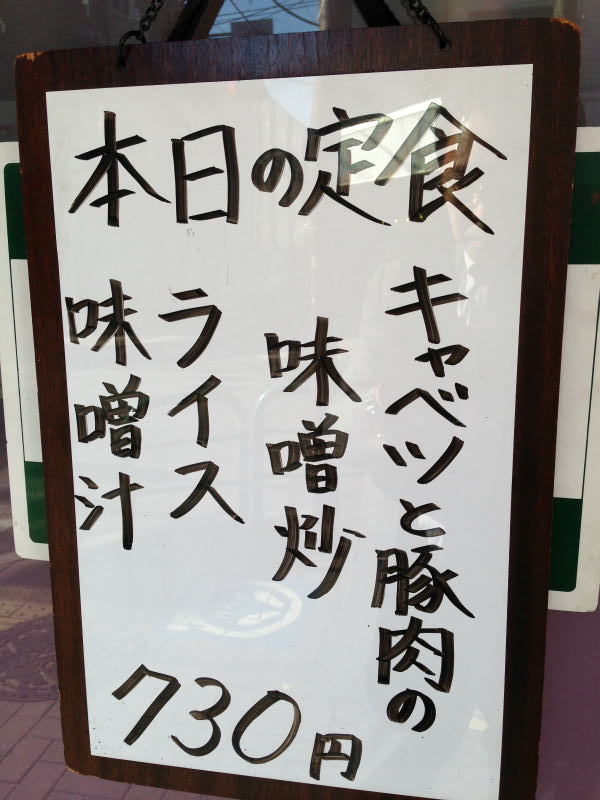 本日の定食
キャベツと豚肉の
味噌炒
ライス
味噌汁
730円